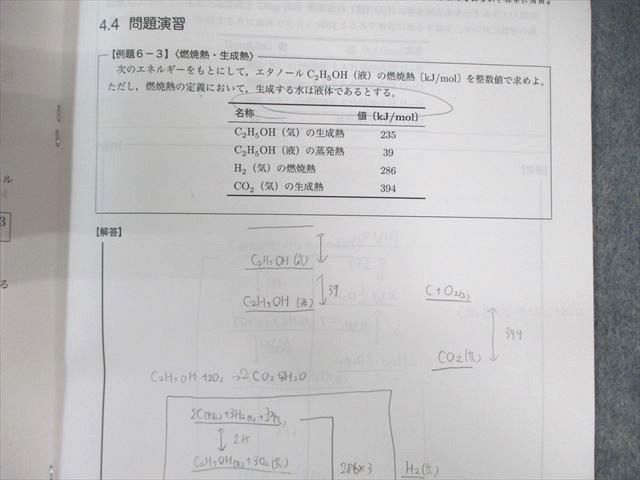 4.4 問題演習
【例題6-3】〈燃焼熱・生成熱〉
次のエネルギーをもとにして，エタノール C₂H₅OH（液）の燃焼熱〔kJ/mol〕を整数値で求めよ。
ただし，燃焼熱の定義において，生成する水は液体であるとする。
名称 値（kJ/mol）
C₂H₅OH（気）の生成熱 235
C₂H₅OH（液）の蒸発熱 39
H₂（気）の燃焼熱 286
CO₂（気）の生成熱 394
【解答】
C₂H₅OH (気)
C₂H₅OH (液) 39
C+O₂(気)
394
CO₂(気)
C₂H₅OH +2O₂ → 2CO₂ 3H₂O
235
C₂H₅OH(気)+3O₂(気)
286×3
H₂(気)
ル
3
る